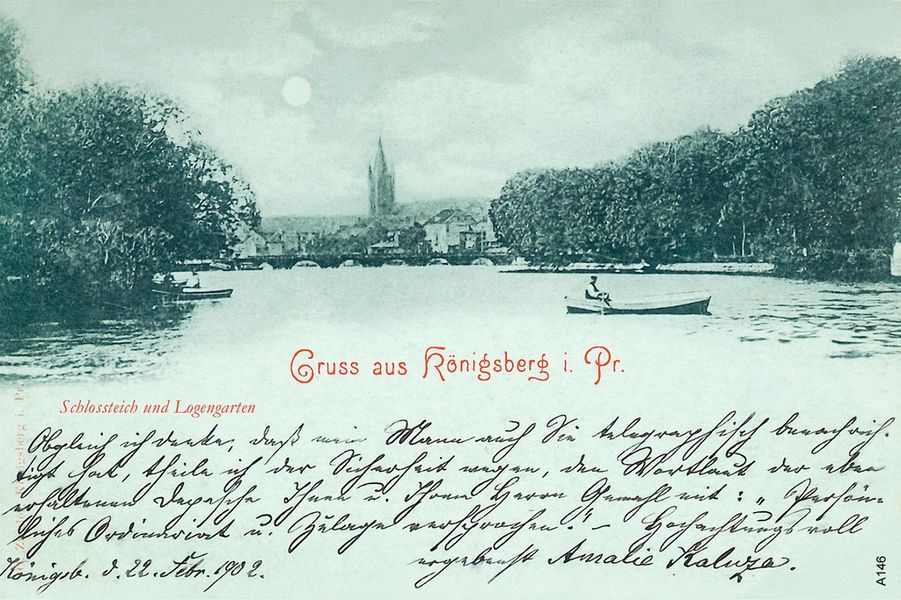 Gruss aus Königsberg i. Pr.
Schlossteich und Logengarten
Obgleich ich denke, daß mein Mann auch Sie telegraphisch benachrich-
tigt hat, theile ich der Sicherheit wegen, den Wortlaut der eben
erhaltenen Depesche Ihnen u. Ihrem Herrn Gemahl mit: „Persön-
liches Ordinariat u. Zulage versprochen." – Hochachtungsvoll
ergebenst Amalie Kaluza.
Königsb. d. 22. Febr. 1902.
A146